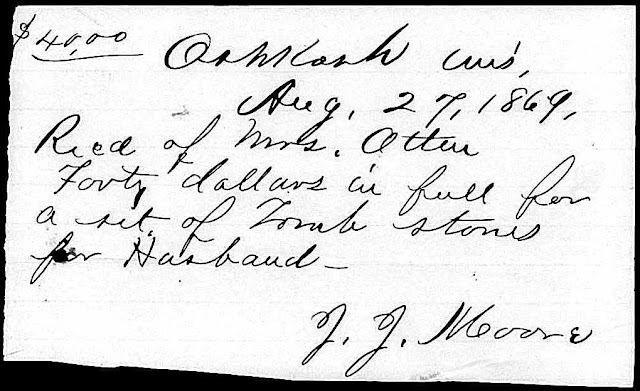 $40.00
Oshkosh Wis,
Aug. 27, 1869,
Recd of Mrs. Otten
Forty dollars in full for
a set of Tomb stones
for Husband —
J. J. Moore